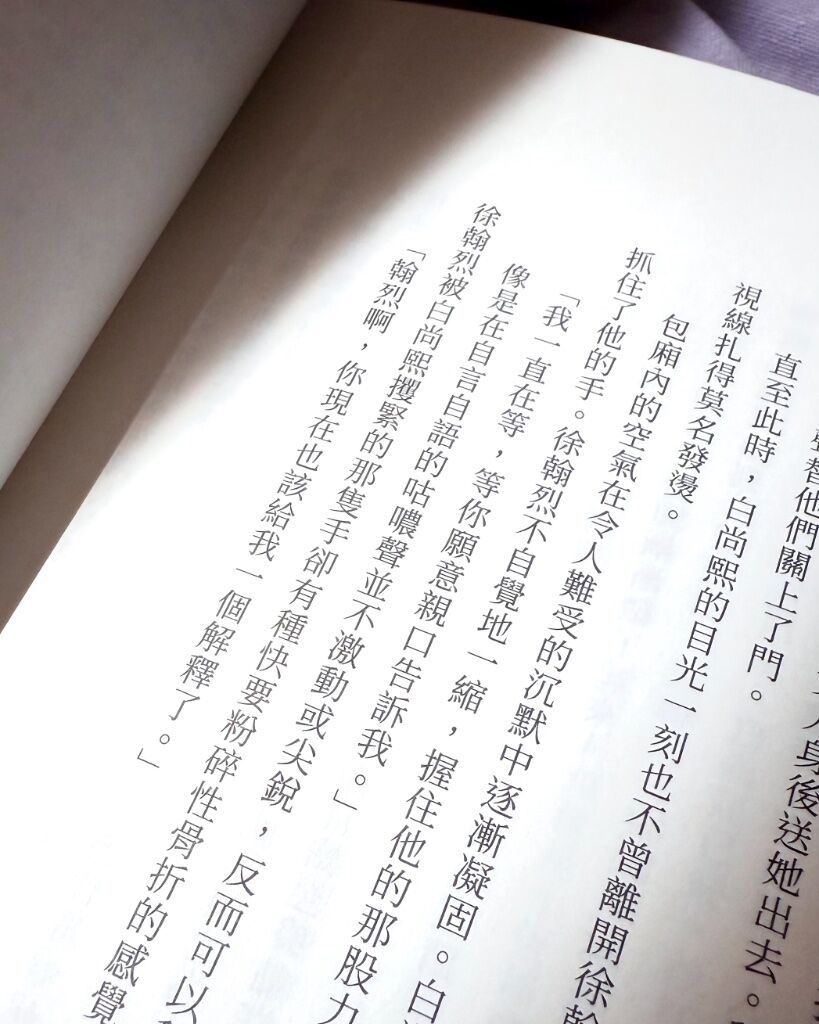 身後送她出去。
替他們關上了門。
直至此時，白尚熙的目光一刻也不曾離開徐翰
視線扎得莫名發燙。
包廂內的空氣在令人難受的沉默中逐漸凝固。白
抓住了他的手。徐翰烈不自覺地一縮，握住他的那股力
「我一直在等，等你願意親口告訴我。」
像是在自言自語的咕噥聲並不激動或尖銳，反而可以
徐翰烈被白尚熙攫緊的那隻手卻有種快要粉碎性骨折的感覺
「翰烈啊，你現在也該給我一個解釋了。」